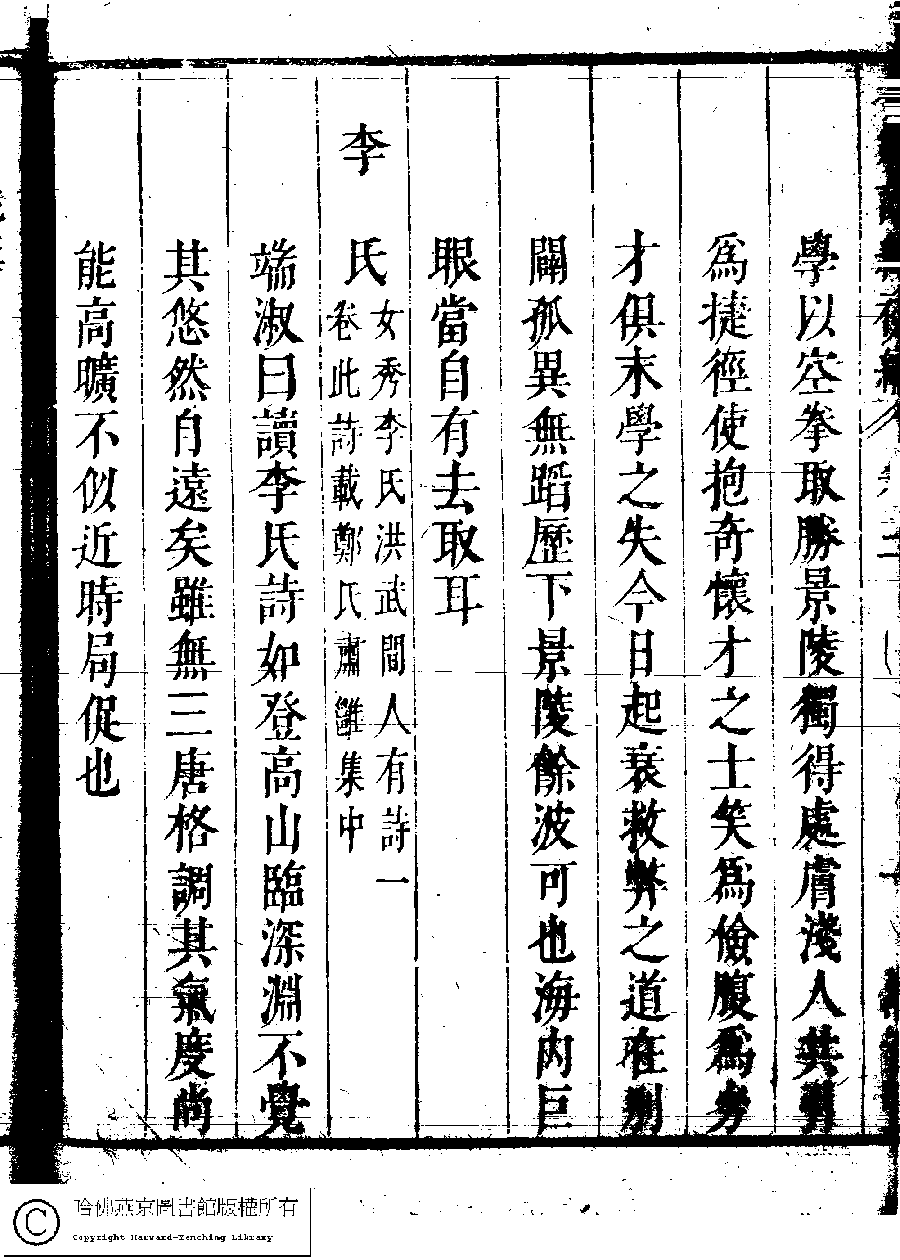 學以空拳取勝景陵獨得處膚淺人共
爲捷徑使抱奇懷才之士笑爲儉腹爲
才俱末學之失今日起衰救弊之道在別
闢孤異無蹈歷下景陵餘波可也海內巨
眼當自有去取耳
李氏
女秀李氏洪武間人有詩一
卷此詩載鄭氏肅雝集中
端淑曰讀李氏詩如登高山臨深淵不覺
其悠然自遠矣雖無三唐格調其氣度尚
能高曠不似近時局促也
哈佛燕京圖書館版權所有
Copyright Harvard-Yenching Library